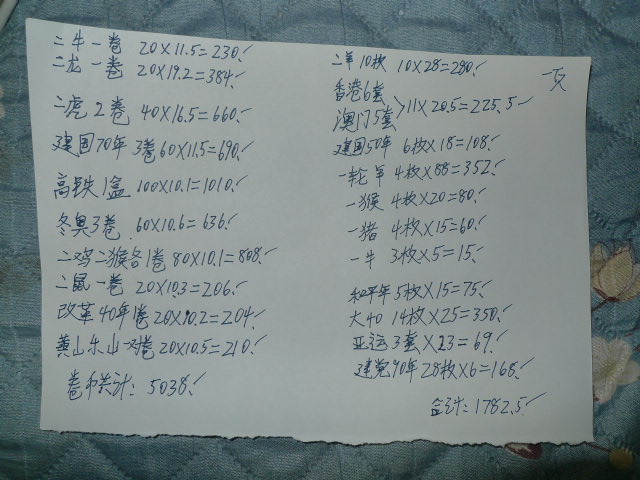 二牛一卷 20×11.5=230.✓
二龙一卷 20×19.2=384.✓
二虎2卷 40×16.5=660.✓
建国70年3卷 60×11.5=690.✓
高铁1盒 100×10.1=1010.✓
冬奥3卷 60×10.6=636.✓
二鸡二猴各1卷 80×10.1=808.✓
二鼠一卷 20×10.3=206.✓
改革40年1卷 20×10.2=204.✓
黄山乐山一对卷 20×10.5=210.✓
卷币共计: 5038.✓
一页
二羊10枚 10×28=280.✓
香港6套
澳门5套 >11×20.5=225.5✓
建国50年 6枚×18=108.✓
一轮羊 4枚×88=352.✓
一猴 4枚×20=80.✓
一猪 4枚×15=60.✓
一牛 3枚×5=15.✓
和平年 5枚×15=75.✓
大40 14枚×25=350.✓
亚运3套×23=69.✓
建党90年28枚×6=168.✓
合计: 1782.5.✓